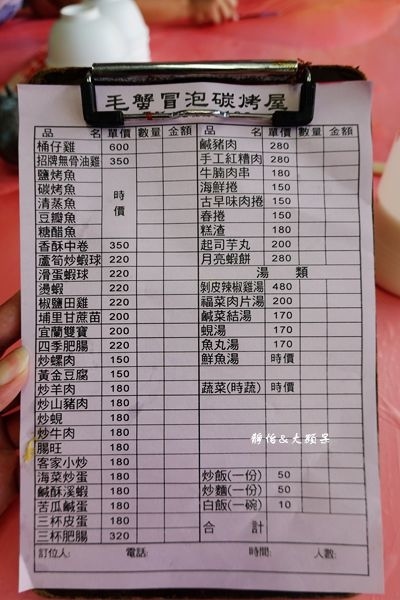 毛蟹冒泡碳烤屋
品 名 單價 數量 金額
桶仔雞 600
招牌無骨油雞 350
鹽烤魚
碳烤魚
清蒸魚
豆瓣魚
糖醋魚
時價
香酥中卷 350
蘆筍炒蝦球 220
滑蛋蝦球 220
燙蝦 220
椒鹽田雞 220
埔里甘蔗苗 200
宜蘭雙寶 200
四季肥腸 220
炒螺肉 150
黃金豆腐 150
炒羊肉 180
炒山豬肉 180
炒蜆 180
炒牛肉 180
腸旺 180
客家小炒 180
海菜炒蛋 180
鹹酥溪蝦 180
苦瓜鹹蛋 180
三杯皮蛋 180
三杯肥腸 320
品 名 單價 數量 金額
鹹豬肉 280
手工紅糟肉 280
牛腩肉串 180
海鮮捲 150
古早味肉捲 150
春捲 150
糕渣 180
起司芋丸 200
月亮蝦餅 280
湯 類
剝皮辣椒雞湯 480
福菜肉片湯 200
鹹菜結湯 170
蜆湯 170
魚丸湯 170
鮮魚湯 時價
蔬菜(時蔬) 時價
炒飯(一份) 50
炒麵(一份) 50
白飯(一碗) 10
合 計
訂位人: 電話: 時間: 人數:
靜怡&大顆呆